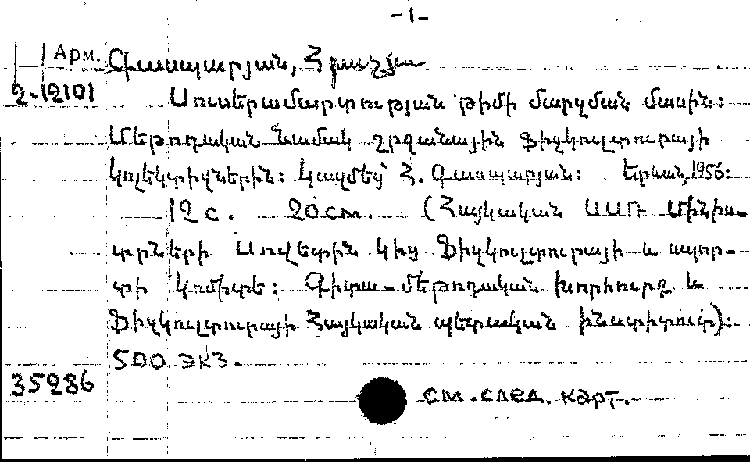 -1-
Арм. Գասպարյան, Հրաչյա
2-12101 Սուսերամարտության թիմի մարզման մասին:
Մեթոդական նամակ շրջանային Ֆիզկուլտուրայի
կոլեկտիվներին: Կազմեց՝ Հ. Գասպարյան: Երևան, 1956:
12 с. 20 см. (Հայկական ՍՍՌ Մինիս-
տրների Սովետին կից Ֆիզկուլտուրայի և սպոր-
տի կոմիտե: Գիտա-մեթոդական խորհուրդ և
Ֆիզկուլտուրայի Հայկական պետական ինստիտուտ):
500 экз.
35286 см. след. карт.